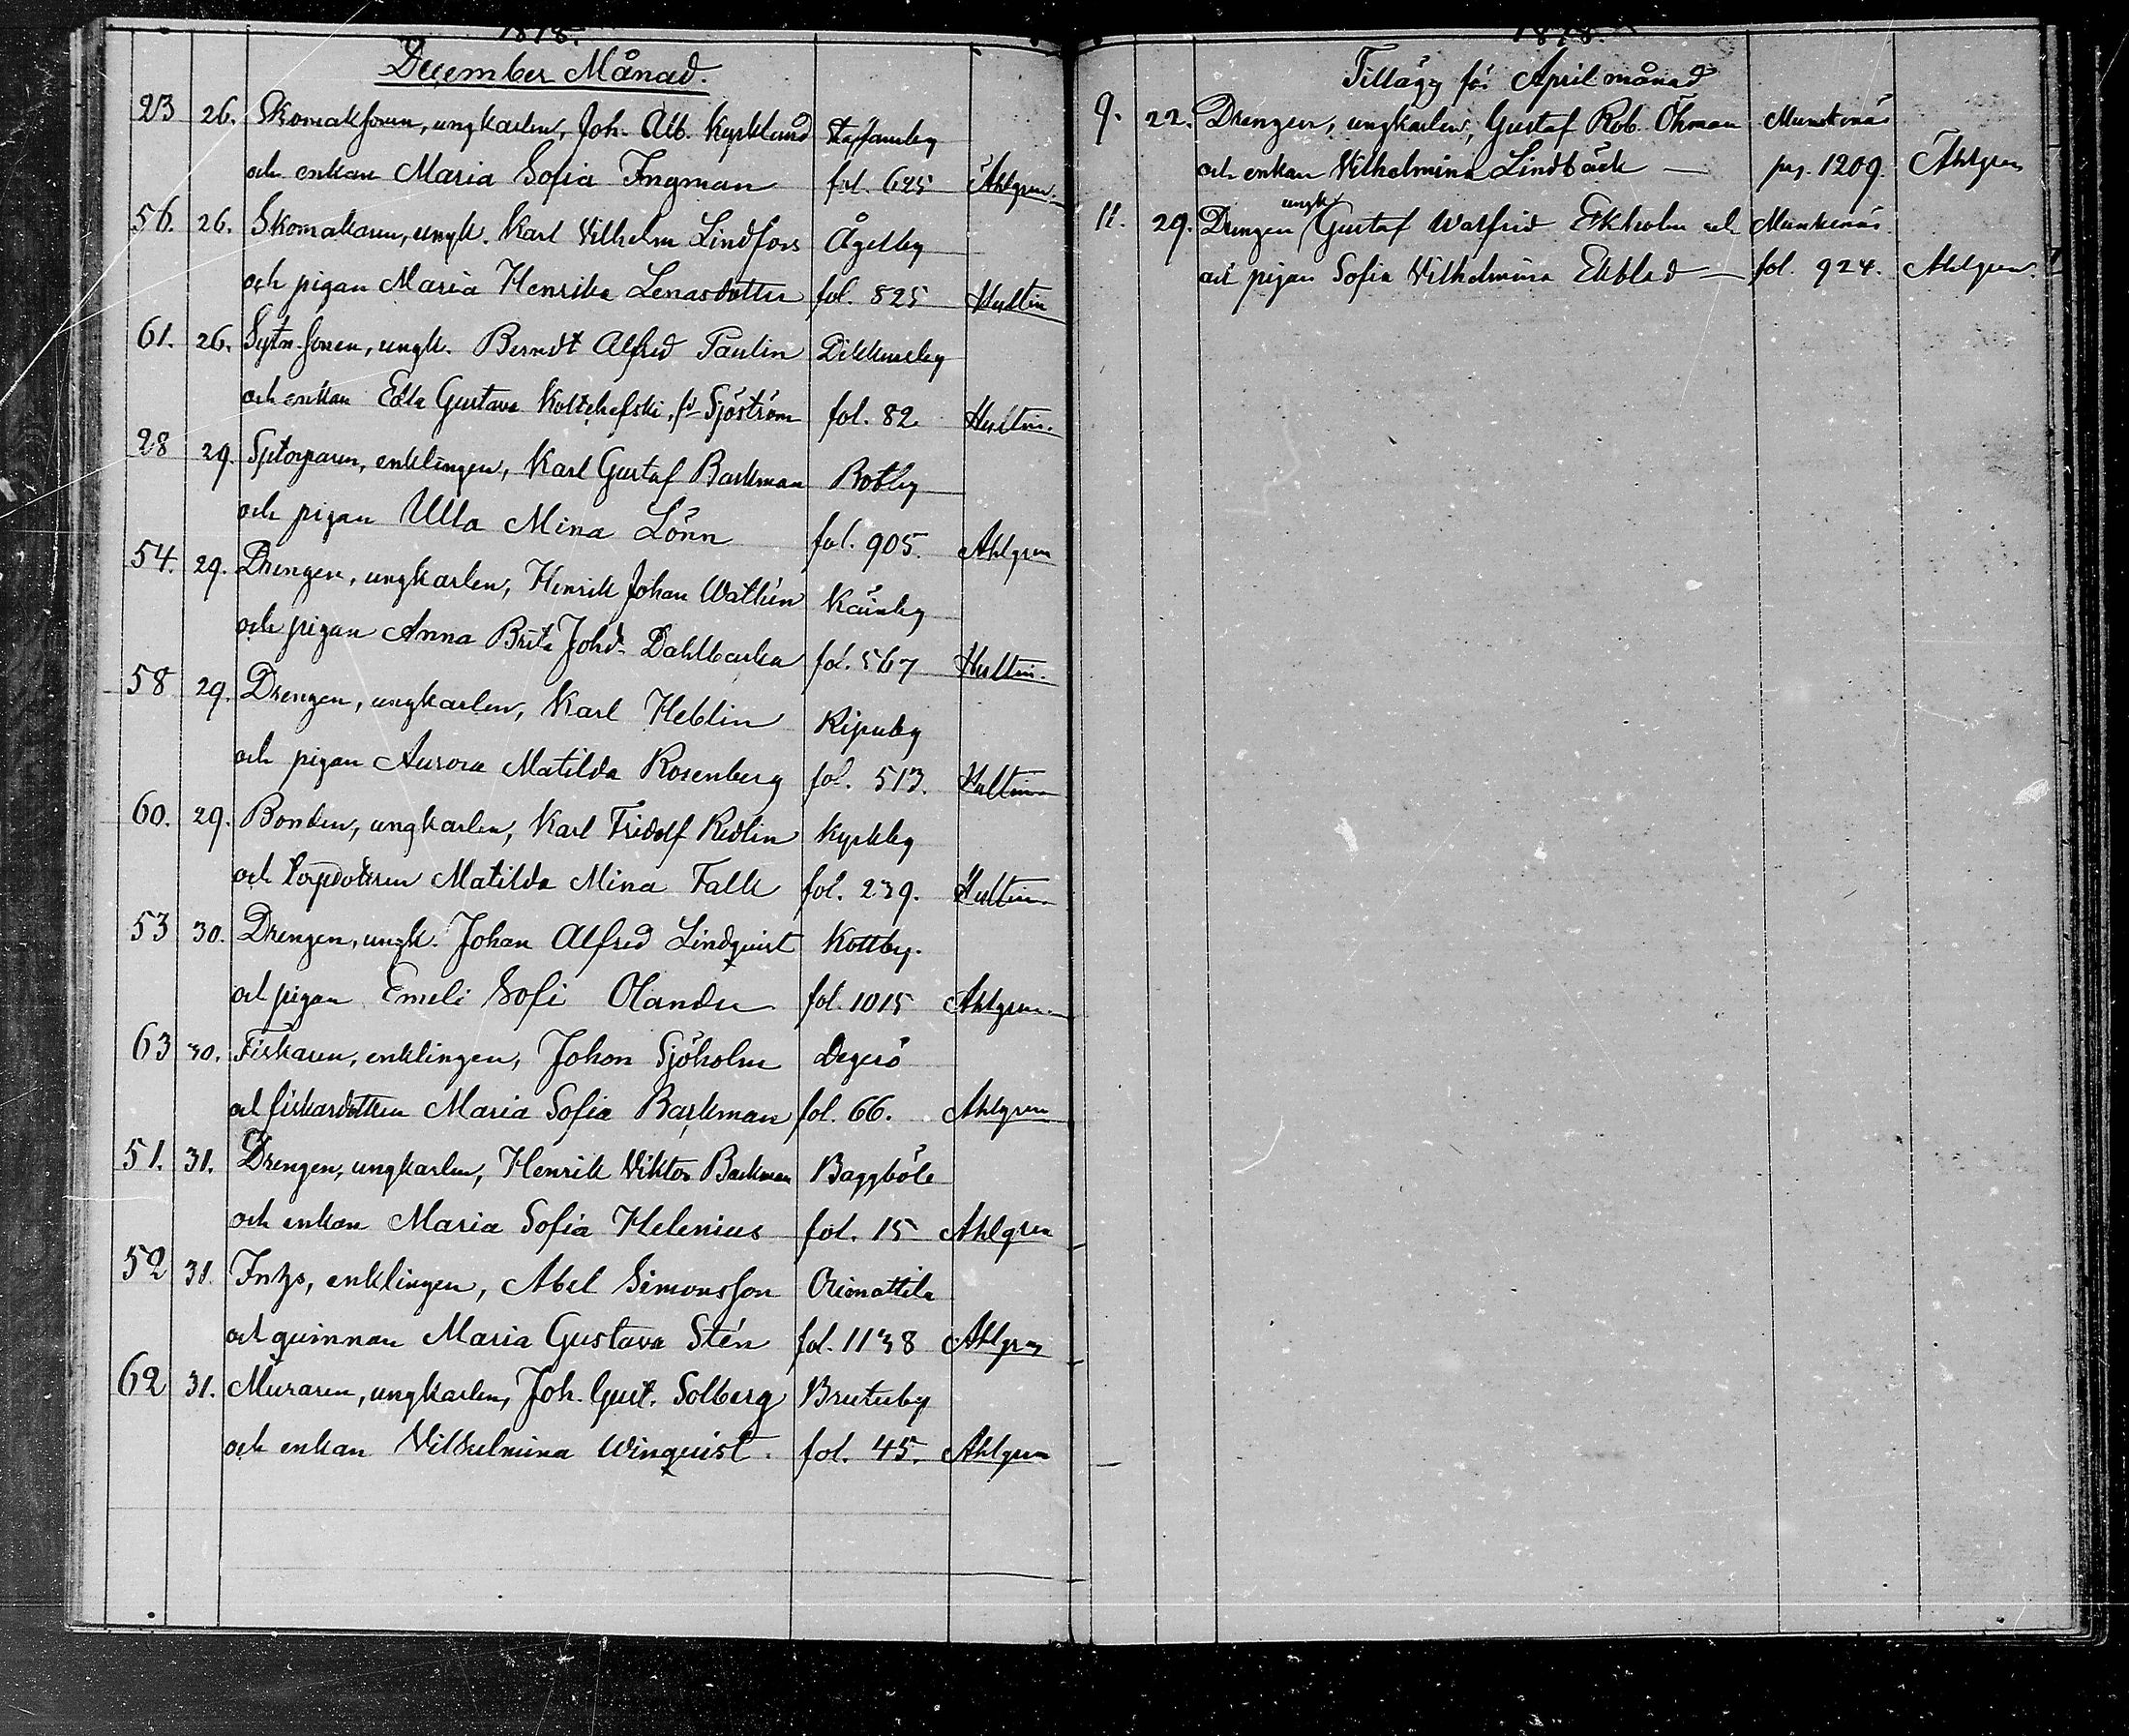 1878.
December Månad.
23 26. Skomaksonen, ungkarlen, Joh. Alb. Kyrklund Staffansby
och enkan Maria Sofia Ingman fol. 625 Ahlgren.
56. 26. Skomakaren, ungk. Karl Vilhelm Lindfors Ågelby
och pigan Maria Henrika Lenasdotter fol. 825 Hultin
61. 26. Sytn.sonen, ungk. Berndt Alfred Paulin Dikkursby
och enkan Edla Gustava Koltchefski, f. Sjöström fol. 82. Hultin.
28 29. Sjtorparen, enklingen, Karl Gustaf Barkman Botby
och pigan Ulla Mina Lönn fol. 905. Ahlgren
54. 29. Drengen, ungkarlen, Henrik Johan Wathén Kårnby
och pigan Anna Brita Johd. Dahlbacka fol. 567 Hultin.
58 29. Drengen, ungkarlen, Karl Heblin Ripuby
och pigan Aurora Matilda Rosenberg fol. 513. Hultin
60. 29. Bonden, ungkarlen, Karl Fridolf Redlin Kyrkby
och torpdottren Matilda Mina Falk fol. 239. Hultin.
53 30. Drengen, ungk. Johan Alfred Lindquist Kottby.
och pigan Emeli Sofi Olander fol. 1015 Ahlgren.
63 30. Fiskaren, enklingen, Johan Sjöholm Degerö
och fiskardottren Maria Sofia Barkman fol. 66. Ahlgren
51. 31. Drengen, ungkarlen, Henrik Viktor Backman Baggböle
och enkan Maria Sofia Helenius fol. 15 Ahlgren
52 31. Inhys, enklingen, Abel Simonsson Orimattila
och quinnan Maria Gustava Stén fol. 1138 Ahlgren
62 31. Muraren, ungkarlen, Joh. Gust. Solberg Brutuby
och enkan Vilhelmina Winquist. fol. 45. Ahlgren
1878.
Tillägg för April månad
9. 22. Drengen, ungkarlen, Gustaf Rob. Öhman Munksnäs
och enkan Vilhelmina Lindbäck — pag. 1209. Ahlgren
11. 29. Drengen ungk. Gustaf Walfrid Ekholm och Munksnäs.
och pigan Sofia Vilhelmina Ekblad — fol. 924. Ahlgren.